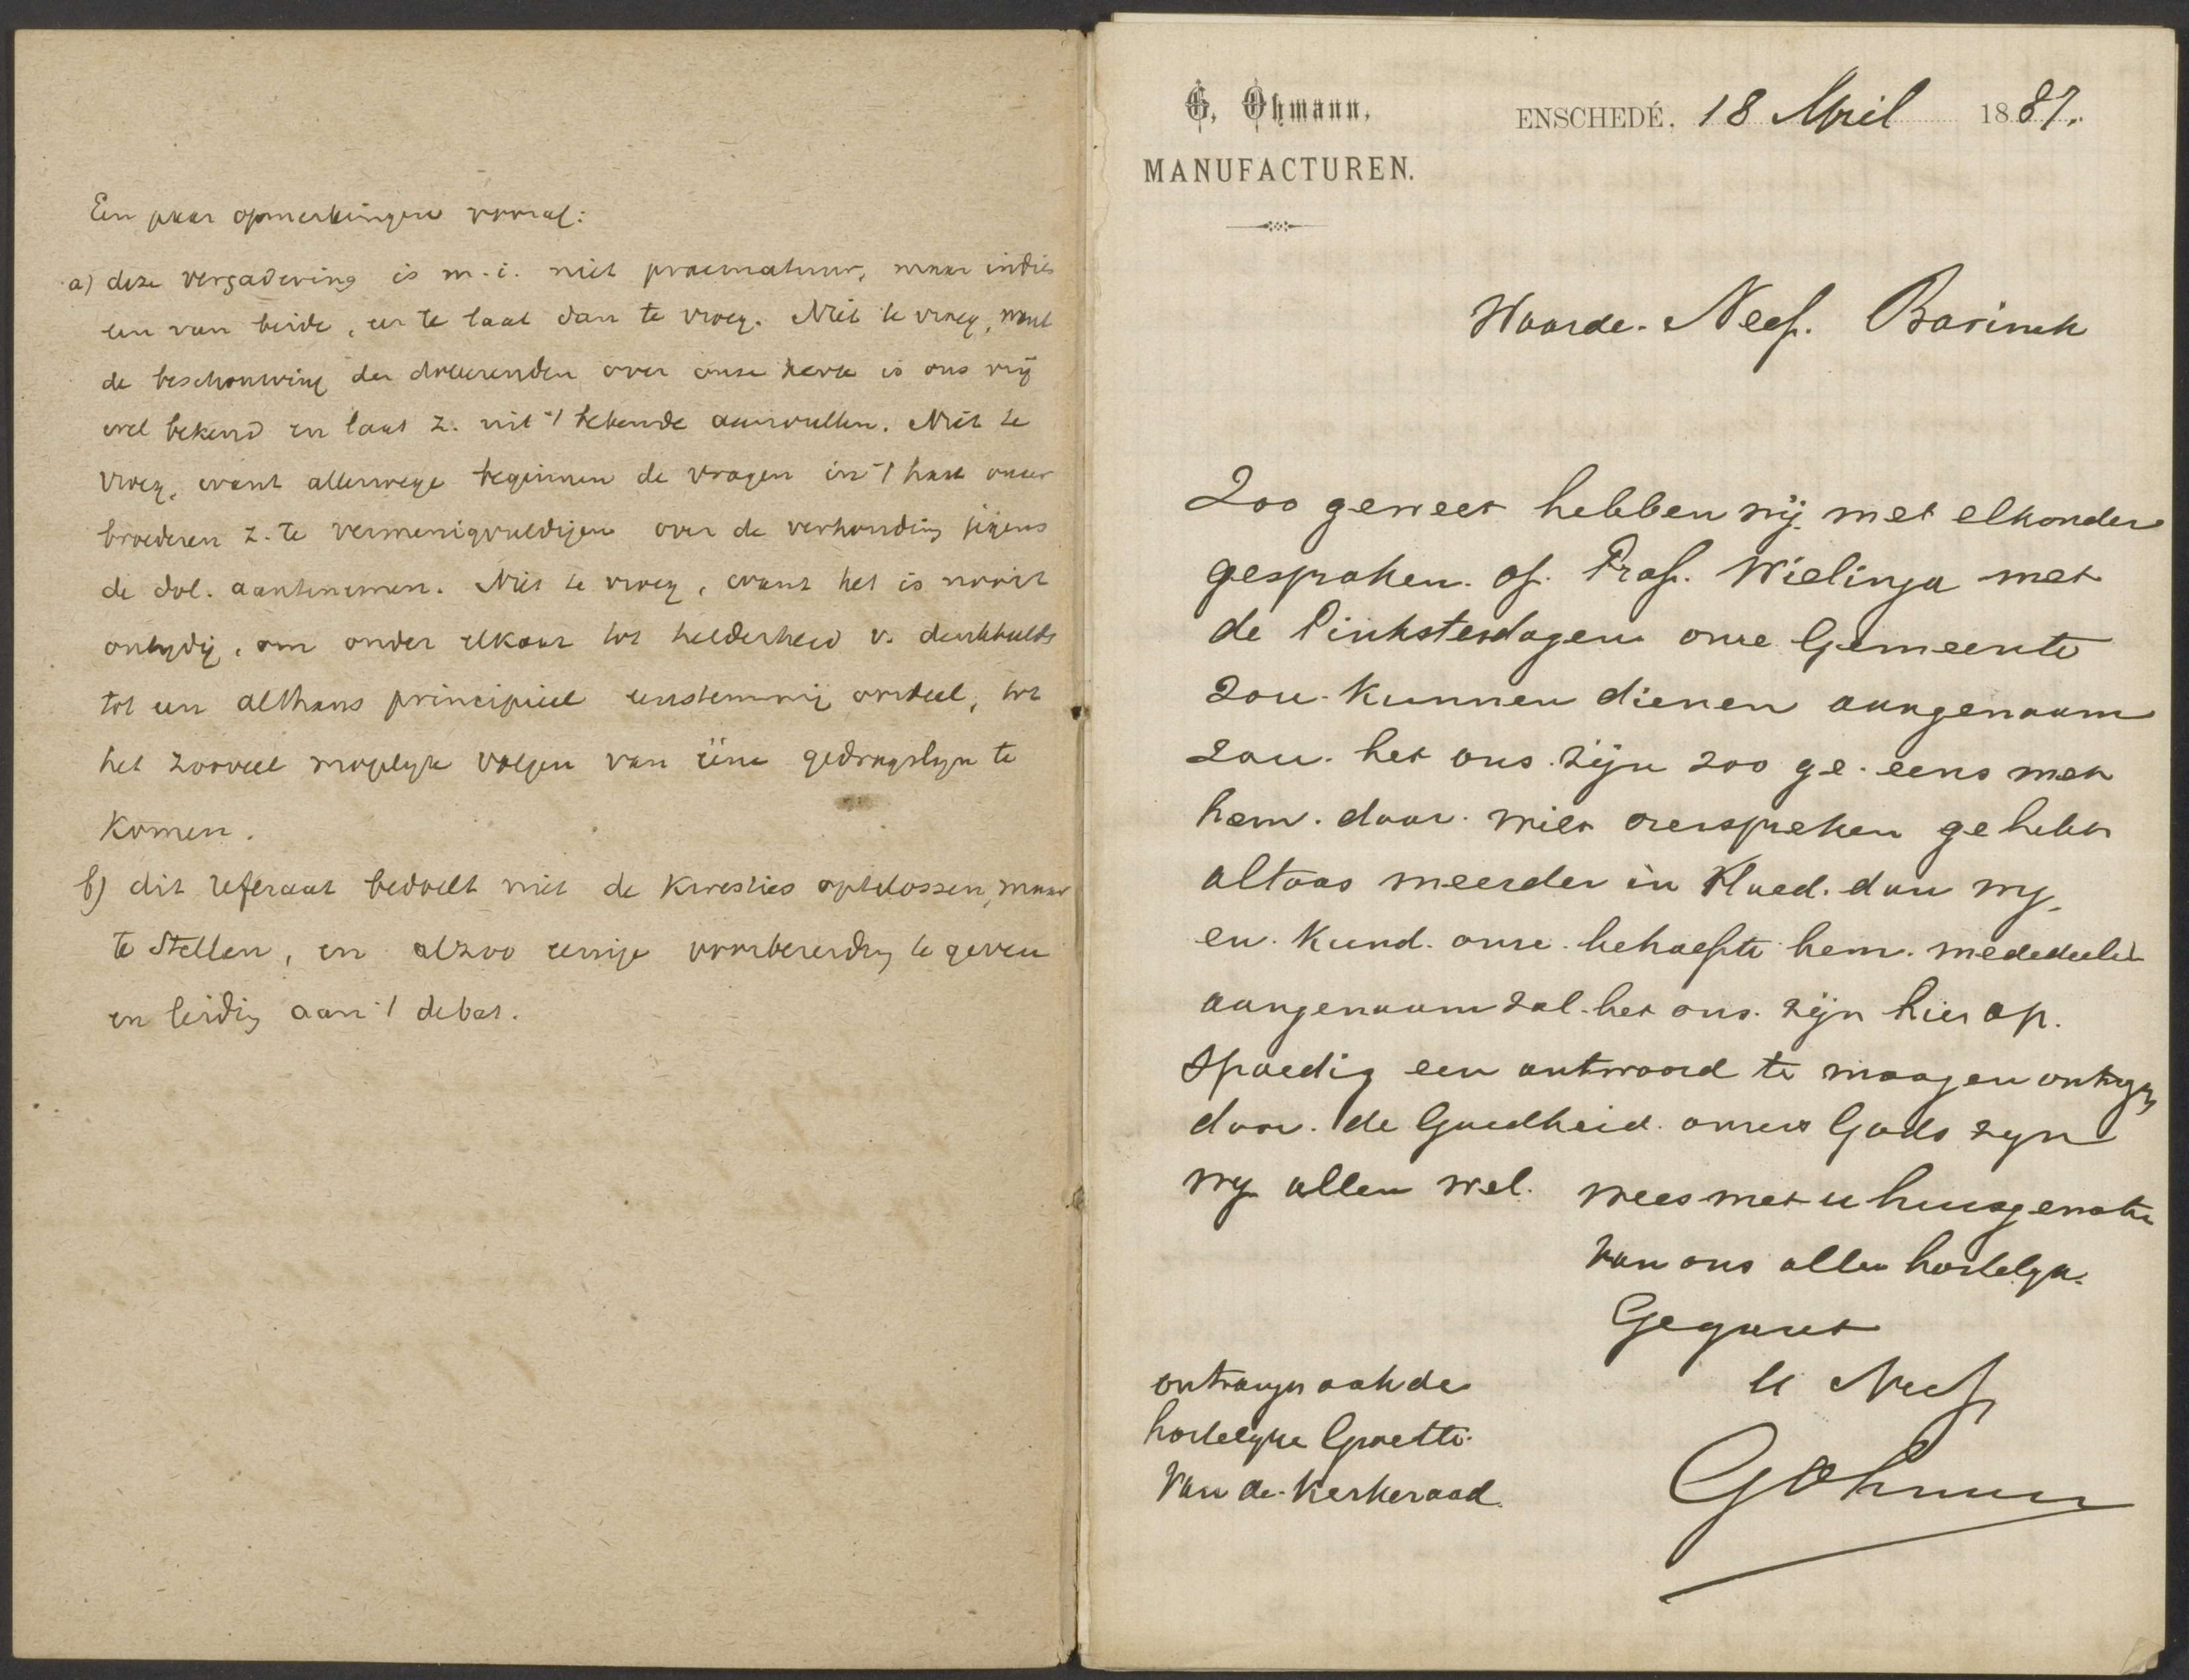 Een paar opmerkingen vooraf:
a) deze vergadering is m.i. niet praematuur, maar indien
een van beide, eer te laat dan te vroeg. Niet te vroeg, want
de beschouwing der doleerenden over onze kerk is ons vrij
wel bekend en laat z. uit 't bekende aanvullen. Niet te
vroeg, want allerwege beginnen de vragen in 't hart onzer
broederen z. te vermenigvuldigen over de verhouding jegens
de dol. aantenemen. Niet te vroeg, want het is nooit
ontydig, om onder elkaar tot helderheid v. denkbeelds
tot een althans principieel eenstemmig oordeel, tot
het zooveel mogelyk volgen van ééne gedragslyn te
komen.
b) dit referaat bedoelt niet de kwesties optelossen, maar
te stellen, en alzoo eenige voorbereiding te geven
en leiding aan 't debat.
G. Ohmann,
MANUFACTUREN.
ENSCHEDÉ, 18 April 1887.
Waarde. Neef. Bavinck
Zoo geweet hebben wij met elkander
gesproken. of. Prof. Wielinga met
de Pinksterdagen onze Gemeente
zou. kunnen dienen aangenaam
zou. het ons. zijn zoo ge. eens met
hem. daar. wilt overspreken ge hebt
altoos meerder in Vloed. dan wy
en. kund. onze. behoefte hem. mededeelen
aangenaam zal. het ons. zijn hier op.
Spoedig een antwoord te moogen ontvgn
door. de Goedheid. onzes Gods zyn
wy allen wel. wees met u huisgenoten
van ons allen hartelyk.
Gegroet
U Neef
GOhmann
ontvangn ook de
hartelyke Groette.
van de. Kerkeraad.